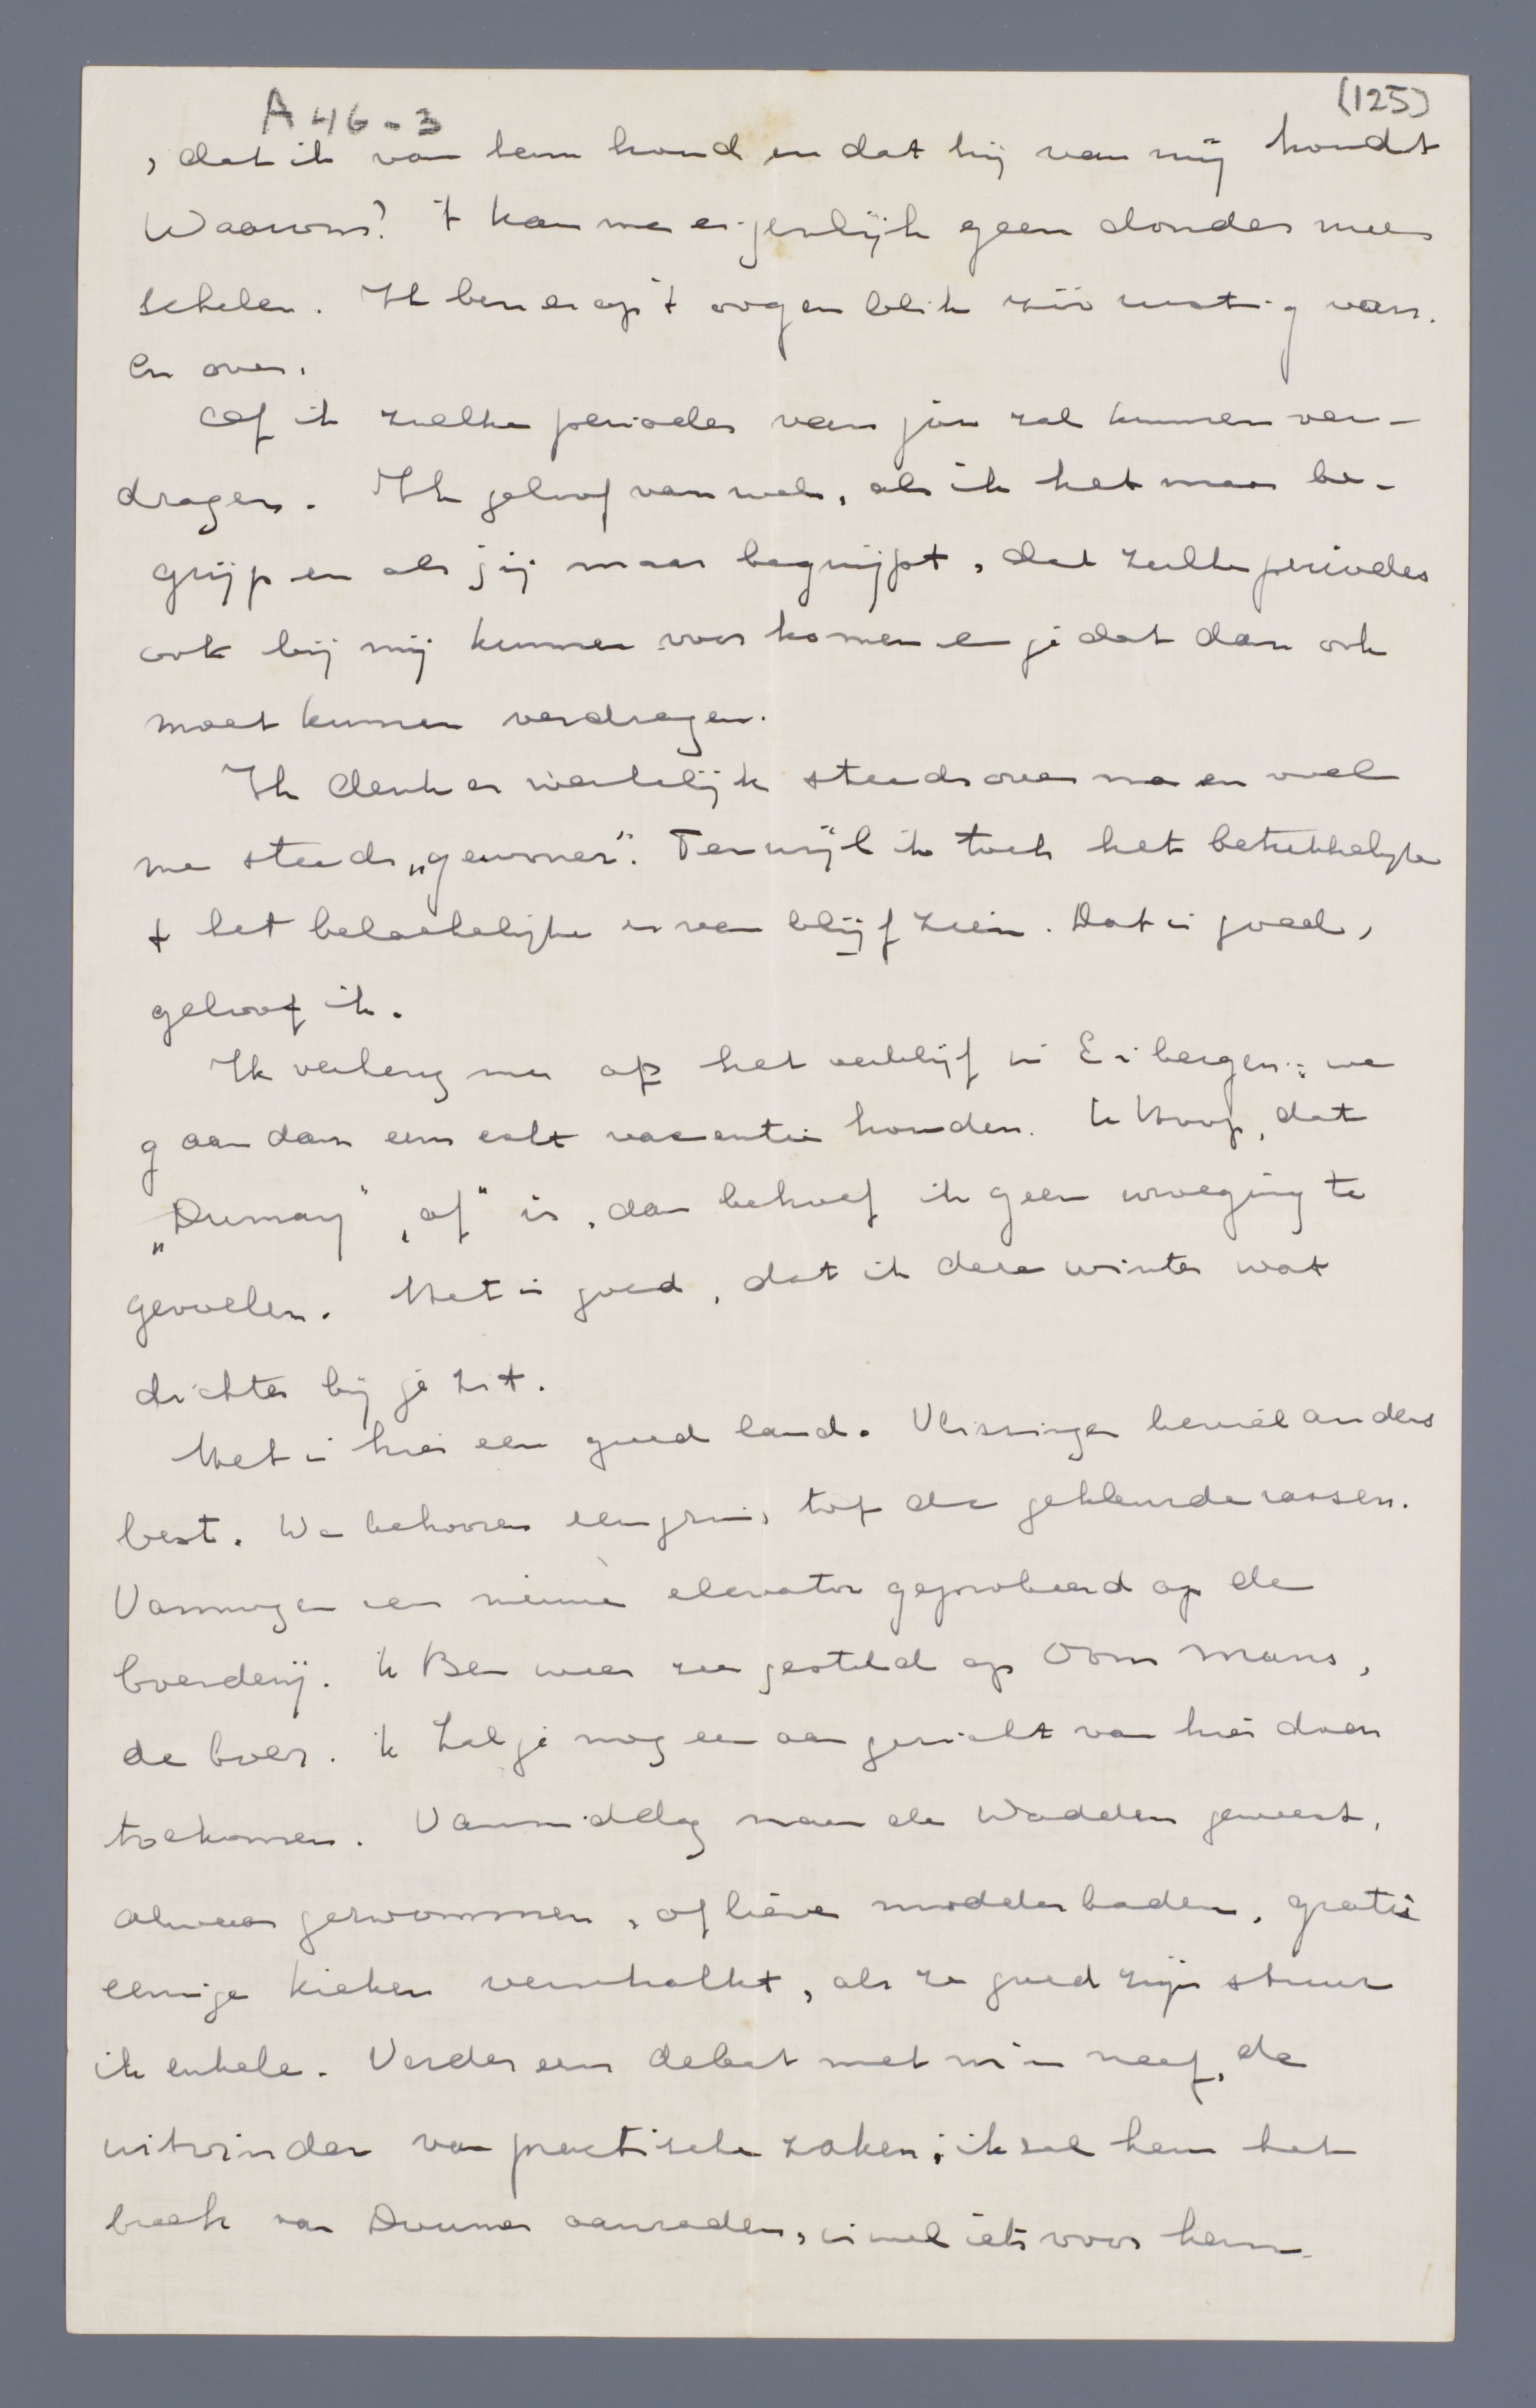 A46-3 (125)
, dat ik van hem houd en dat hij van mij houdt
Waarom? 't kan me eigenlijk geen donder mee
schelen. Ik ben er op 't oogenblik zóó rustig van.
en over.
Of ik zulke periodes van jou zal kunnen ver-
dragen. Ik geloof van wel, als ik het maar be-
grijp en als jij maar begrijpt, dat zulke periodes
ook bij mij kunnen voorkomen en je dat dan ook
moet kunnen verdragen.
Ik denk er werkelijk steeds over na en voel
me steeds „gewoner". Terwijl ik toch het betrekkelijke
+ het belachelijke er van blijf zien. Dat is goed,
geloof ik.
Ik verheug me op het verblijf in Eibergen; we
gaan dan een echt vacantie houden. Ik Hoop, dat
„Dumay" „af" is, dan behoef ik geen wroeging te
gevoelen. Het is goed, dat ik deze winter wat
dichter bij je zit.
Het is hier een goed land. Vlissingen beviel anders
best. We behooren tot de gekleurde rassen.
Vanmorgen een nieuwe elevator geprobeerd op de
boerderij. Ik Ben weer zeer gesteld op Oom Mans,
de boer. Ik Zal je nog een aangezicht van hier doen
toekomen. Vanmiddag naar de Wadden geweest,
alwaar gezwommen, of liever modderbaden, gratis
eenige kieken verschalkt, als ze goed zijn stuur
ik enkele. Verder een debat met m'n neef, de
uitvinder van practische zaken; ik zal hem het
boek van Douwes aanraden, is wel iets voor hem.